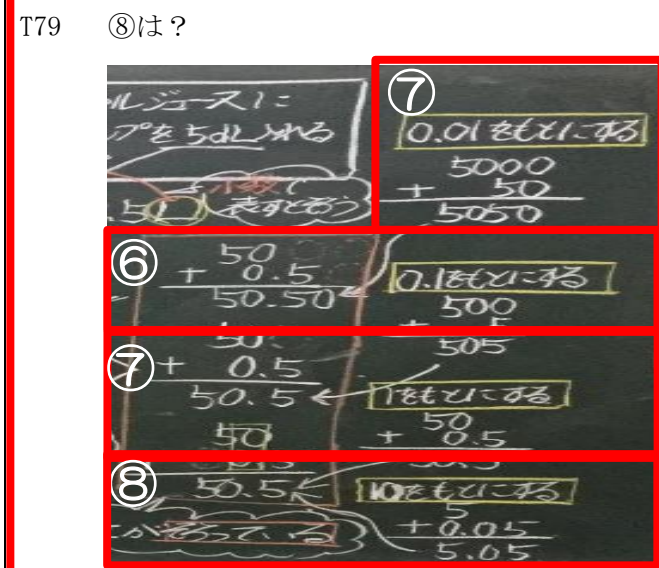 T79 ⑧は？
ルジュースに
プを5dL入れる
小数
表すとそう
⑦
0.01をもとにする
5000
+ 50
5050
⑥
50
+ 0.5
50.50
0.1をもとにする
500
+ 5
505
⑦
50.
+ 0.5
50.5
50
1をもとにする
50
+ 0.5
⑧
50.5
そろっている
10をもとにする
5
+0.05
5.05